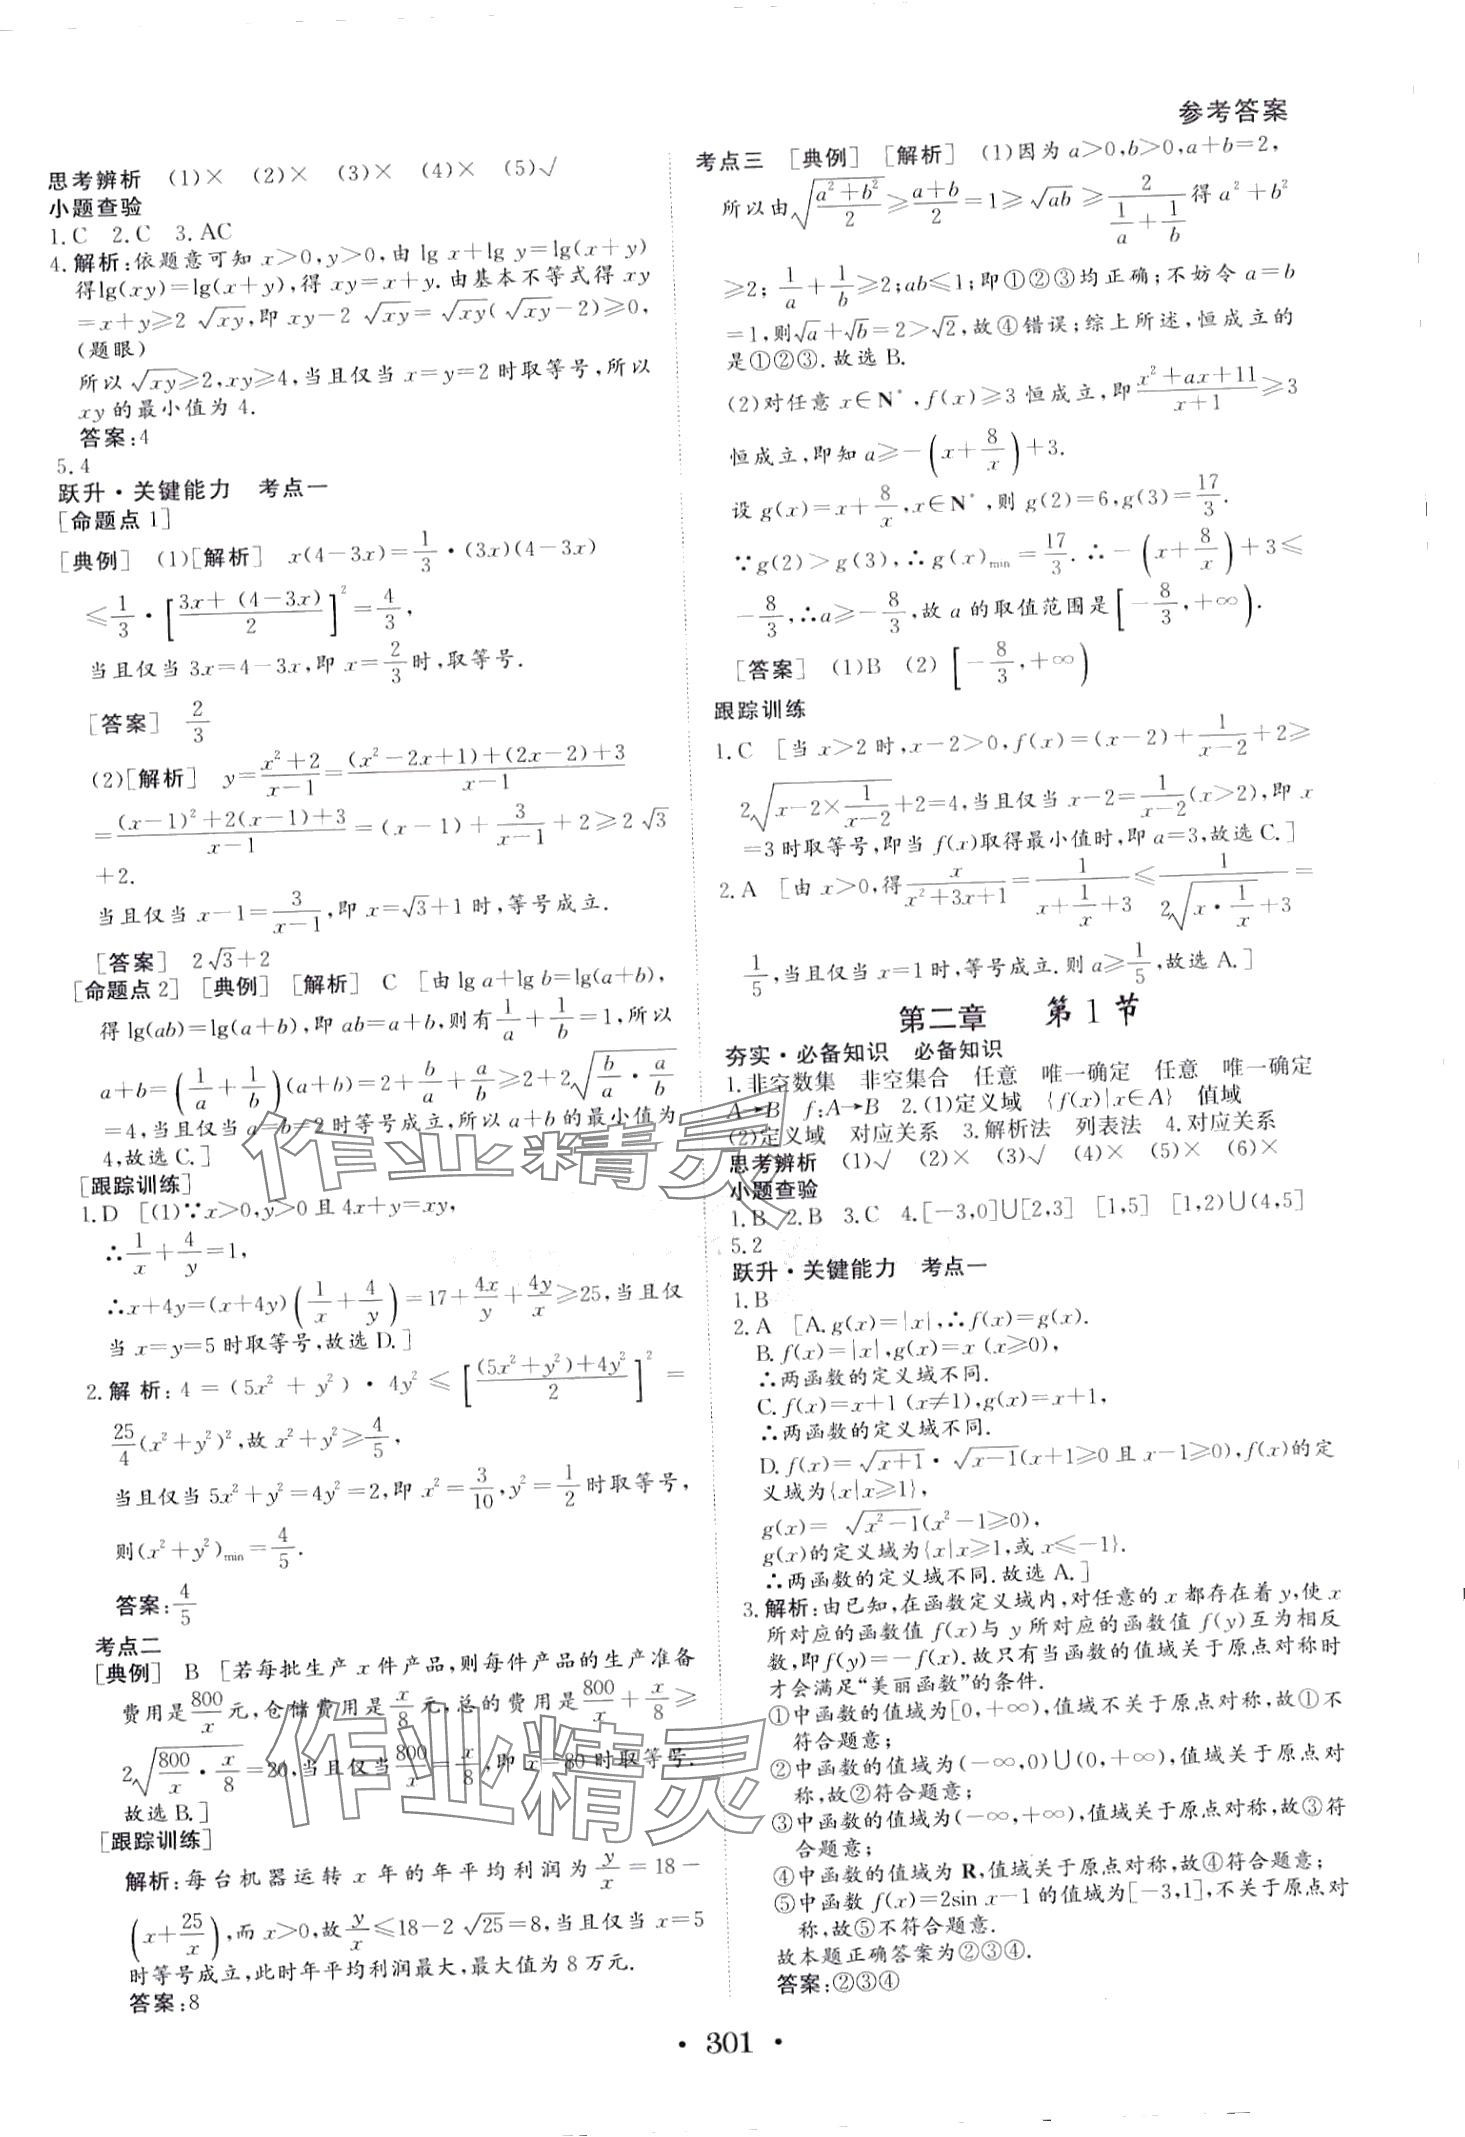 参考答案
思考辨析 (1)× (2)× (3)× (4)× (5)√
小题查验
1.C 2.C 3.AC
4.解析:依题意可知 x>0,y>0,由 lg x+lg y=lg(x+y)
得lg(xy)=lg(x+y),得 xy=x+y.由基本不等式得 xy
=x+y≥2√(xy),即 xy-2√(xy)=√(xy)(√(xy)-2)≥0,
(题眼)
所以√(xy)≥2,xy≥4,当且仅当 x=y=2 时取等号,所以
xy 的最小值为 4.
答案:4
5.4
跃升·关键能力 考点一
[命题点 1]
[典例] (1)[解析] x(4-3x)=1/3·(3x)(4-3x)
≤1/3·[(3x+(4-3x))/2]²=4/3,
当且仅当 3x=4-3x,即 x=2/3时,取等号.
[答案] 2/3
(2)[解析] y=(x²+2)/(x-1)=((x²-2x+1)+(2x-2)+3)/(x-1)
=((x-1)²+2(x-1)+3)/(x-1)=(x-1)+3/(x-1)+2≥2√3
+2.
当且仅当 x-1=3/(x-1),即 x=√3+1 时,等号成立.
[答案] 2√3+2
[命题点 2] [典例] [解析] C [由 lg a+lg b=lg(a+b),
得 lg(ab)=lg(a+b),即 ab=a+b,则有1/a+1/b=1,所以
a+b=(1/a+1/b)(a+b)=2+b/a+a/b≥2+2√(b/a·a/b)
=4,当且仅当 a=b=2 时等号成立,所以 a+b 的最小值为
4,故选 C.]
[跟踪训练]
1.D [(1)∵x>0,y>0 且 4x+y=xy,
∴1/x+4/y=1,
∴x+4y=(x+4y)(1/x+4/y)=17+4x/y+4y/x≥25,当且仅
当 x=y=5 时取等号,故选 D.]
2.解析:4=(5x²+y²)·4y²≤[((5x²+y²)+4y²)/2]²=
25/4(x²+y²)²,故 x²+y²≥4/5,
当且仅当 5x²+y²=4y²=2,即 x²=3/10,y²=1/2时取等号,
则(x²+y²)min=4/5.
答案:4/5
考点二
[典例] B [若每批生产 x 件产品,则每件产品的生产准备
费用是800/x元,仓储费用是x/8元,总的费用是800/x+x/8≥
2√(800/x·x/8)=20,当且仅当800/x=x/8,即 x=80 时取等号.
故选 B.]
[跟踪训练]
解析:每台机器运转 x 年的年平均利润为y/x=18-
(x+25/x),而 x>0,故y/x≤18-2√25=8,当且仅当 x=5
时等号成立,此时年平均利润最大,最大值为 8 万元.
答案:8
考点三 [典例] [解析] (1)因为 a>0,b>0,a+b=2,
所以由√((a²+b²)/2)≥(a+b)/2=1≥√(ab)≥2/(1/a+1/b)得 a²+b²
≥2;1/a+1/b≥2;ab≤1;即①②③均正确;不妨令 a=b
=1,则√a+√b=2>√2,故④错误;综上所述,恒成立的
是①②③.故选 B.
(2)对任意 x∈N*,f(x)≥3 恒成立,即(x²+ax+11)/(x+1)≥3
恒成立,即知 a≥-(x+8/x)+3.
设 g(x)=x+8/x,x∈N*,则 g(2)=6,g(3)=17/3.
∵g(2)>g(3),∴g(x)min=17/3.∴-(x+8/x)+3≤
-8/3,∴a≥-8/3,故 a 的取值范围是[-8/3,+∞).
[答案] (1)B (2)[-8/3,+∞)
跟踪训练
1.C [当 x>2 时,x-2>0,f(x)=(x-2)+1/(x-2)+2≥
2√(x-2×1/(x-2))+2=4,当且仅当 x-2=1/(x-2)(x>2),即 x
=3 时取等号,即当 f(x)取得最小值时,即 a=3,故选 C.]
2.A [由 x>0,得x/(x²+3x+1)=1/(x+1/x+3)≤1/(2√(x·1/x)+3)=
1/5,当且仅当 x=1 时,等号成立.则 a≥1/5,故选 A.]
第二章 第 1 节
夯实·必备知识 必备知识
1.非空数集 非空集合 任意 唯一确定 任意 唯一确定
A→B f:A→B 2.(1)定义域 {f(x)|x∈A} 值域
(2)定义域 对应关系 3.解析法 列表法 4.对应关系
思考辨析 (1)√ (2)× (3)√ (4)× (5)× (6)×
小题查验
1.B 2.B 3.C 4.[-3,0]∪[2,3] [1,5] [1,2)∪(4,5]
5.2
跃升·关键能力 考点一
1.B
2.A [A.g(x)=|x|,∴f(x)=g(x).
B.f(x)=|x|,g(x)=x (x≥0),
∴两函数的定义域不同.
C.f(x)=x+1 (x≠1),g(x)=x+1,
∴两函数的定义域不同.
D.f(x)=√(x+1)·√(x-1)(x+1≥0 且 x-1≥0),f(x)的定
义域为{x|x≥1},
g(x)=√(x²-1)(x²-1≥0),
g(x)的定义域为{x|x≥1,或 x≤-1}.
∴两函数的定义域不同.故选 A.]
3.解析:由已知,在函数定义域内,对任意的 x 都存在着 y,使 x
所对应的函数值 f(x)与 y 所对应的函数值 f(y)互为相反
数,即 f(y)=-f(x).故只有当函数的值域关于原点对称时
才会满足“美丽函数”的条件.
①中函数的值域为[0,+∞),值域不关于原点对称,故①不
符合题意;
②中函数的值域为(-∞,0)∪(0,+∞),值域关于原点对
称,故②符合题意;
③中函数的值域为(-∞,+∞),值域关于原点对称,故③符
合题意;
④中函数的值域为 R,值域关于原点对称,故④符合题意;
⑤中函数 f(x)=2sin x-1 的值域为[-3,1],不关于原点对
称,故⑤不符合题意.
故本题正确答案为②③④.
答案:②③④
作业精灵
作业精灵
·301·